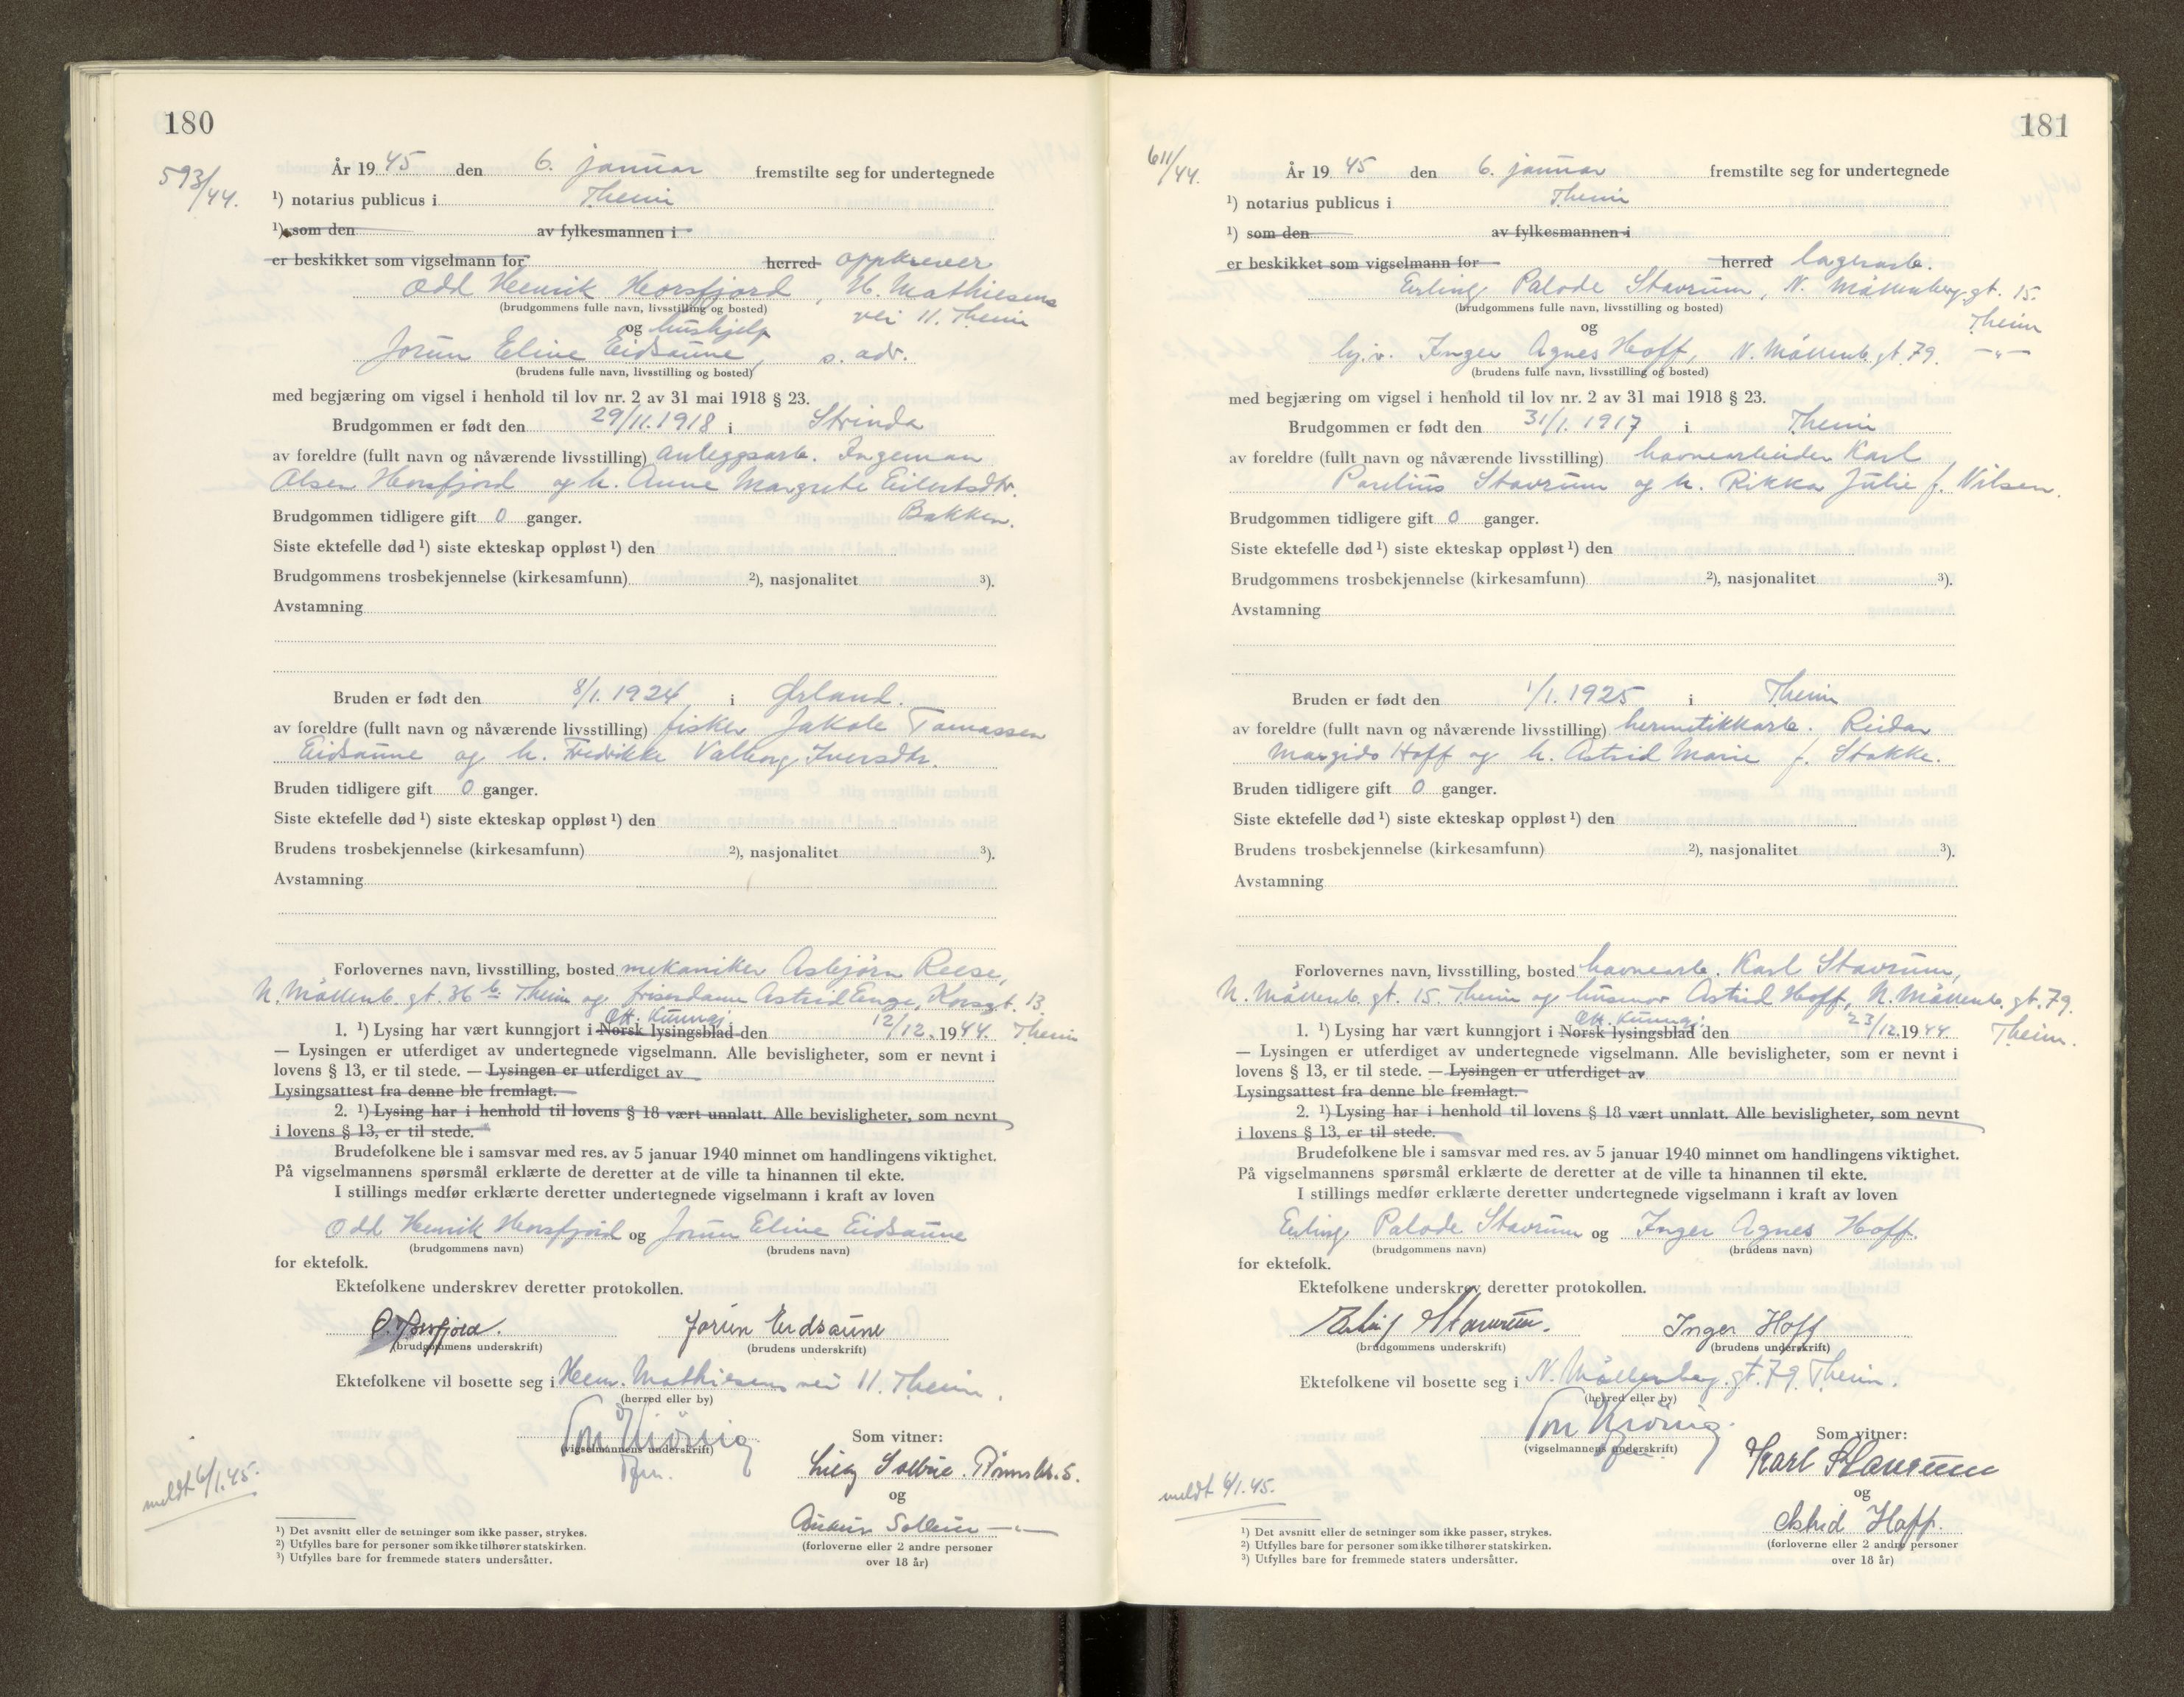 180
593/44.
År 1945 den 6. januar fremstilte seg for undertegnede
¹) notarius publicus i Theim
¹) som den av fylkesmannen i
er beskikket som vigselmann for herred oppkrever
Odd Henrik Horsfjord, H. Mathiesens
(brudgommens fulle navn, livsstilling og bosted) vei 11. Theim
og hushjelp
Jorun Eline Eidsaune, s. adr.
(brudens fulle navn, livsstilling og bosted)
med begjæring om vigsel i henhold til lov nr. 2 av 31 mai 1918 § 23.
Brudgommen er født den 29/11.1918 i Strinda
av foreldre (fullt navn og nåværende livsstilling) anleggsarb. Ingeman
Olsen Horsfjord og h. Anne Margrete Eilertsdtr.
Brudgommen tidligere gift 0 ganger. Bakken.
Siste ektefelle død ¹) siste ekteskap oppløst ¹) den
Brudgommens trosbekjennelse (kirkesamfunn) ²), nasjonalitet ³).
Avstamning
Bruden er født den 8/1. 1924 i Ørland.
av foreldre (fullt navn og nåværende livsstilling) fisker Jakob Tomassen
Eidsaune og h. Fredrikke Valborg Iversdtr.
Bruden tidligere gift 0 ganger.
Siste ektefelle død ¹) siste ekteskap oppløst ¹) den
Brudens trosbekjennelse (kirkesamfunn) ²), nasjonalitet ³).
Avstamning
Forlovernes navn, livsstilling, bosted mekaniker Asbjørn Reese,
N. Møllenb. gt. 36 b Theim og frisørdame Astrid Enge, Korsgt. 13
Off. kunngj.
1. ¹) Lysing har vært kunngjort i Norsk lysingsblad den 12/12. 1944. Theim
— Lysingen er utferdiget av undertegnede vigselmann. Alle bevisligheter, som er nevnt i
lovens § 13, er til stede. — Lysingen er utferdiget av
Lysingsattest fra denne ble fremlagt.
2. ¹) Lysing har i henhold til lovens § 18 vært unnlatt. Alle bevisligheter, som nevnt
i lovens § 13, er til stede.
Brudefolkene ble i samsvar med res. av 5 januar 1940 minnet om handlingens viktighet.
På vigselmannens spørsmål erklærte de deretter at de ville ta hinannen til ekte.
I stillings medfør erklærte deretter undertegnede vigselmann i kraft av loven
Odd Henrik Horsfjord og Jorun Eline Eidsaune
(brudgommens navn) (brudens navn)
for ektefolk.
Ektefolkene underskrev deretter protokollen.
O. Horsfjord. Jorun Eidsaune
(brudgommens underskrift) (brudens underskrift)
Ektefolkene vil bosette seg i Henr. Mathiesens vei 11. Theim.
(herred eller by)
(vigselmannens underskrift)
Som vitner:
og
(forloverne eller 2 andre personer
over 18 år)
meldt 6/1.45.
¹) Det avsnitt eller de setninger som ikke passer, strykes.
²) Utfylles bare for personer som ikke tilhører statskirken.
³) Utfylles bare for fremmede staters undersåtter.
181
611/44.
År 1945 den 6. januar fremstilte seg for undertegnede
¹) notarius publicus i Theim
¹) som den av fylkesmannen i
er beskikket som vigselmann for herred lagerarb.
Erling Palode Stavrum, N. Møllenberg gt. 15.
(brudgommens fulle navn, livsstilling og bosted) Theim
og
hj.v. Inger Agnes Hoff, N. Møllenb. gt. 79. —"—
(brudens fulle navn, livsstilling og bosted)
med begjæring om vigsel i henhold til lov nr. 2 av 31 mai 1918 § 23.
Brudgommen er født den 31/1. 1917 i Theim
av foreldre (fullt navn og nåværende livsstilling) havnearbeider Karl
Parelius Stavrum og h. Rikka Julie f. Nilsen.
Brudgommen tidligere gift 0 ganger.
Siste ektefelle død ¹) siste ekteskap oppløst ¹) den
Brudgommens trosbekjennelse (kirkesamfunn) ²), nasjonalitet ³).
Avstamning
Bruden er født den 1/1. 1925 i Theim
av foreldre (fullt navn og nåværende livsstilling) hermetikkarb. Reidar
Margido Hoff og h. Astrid Marie f. Stokke.
Bruden tidligere gift 0 ganger.
Siste ektefelle død ¹) siste ekteskap oppløst ¹) den
Brudens trosbekjennelse (kirkesamfunn) ²), nasjonalitet ³).
Avstamning
Forlovernes navn, livsstilling, bosted havnearb. Karl Stavrum,
N. Møllenb. gt. 15. Theim og husmor Astrid Hoff, N. Møllenb. gt. 79.
Off. kunngj.
1. ¹) Lysing har vært kunngjort i Norsk lysingsblad den 23/12. 1944. Theim.
— Lysingen er utferdiget av undertegnede vigselmann. Alle bevisligheter, som er nevnt i
lovens § 13, er til stede. — Lysingen er utferdiget av
Lysingsattest fra denne ble fremlagt.
2. ¹) Lysing har i henhold til lovens § 18 vært unnlatt. Alle bevisligheter, som nevnt
i lovens § 13, er til stede.
Brudefolkene ble i samsvar med res. av 5 januar 1940 minnet om handlingens viktighet.
På vigselmannens spørsmål erklærte de deretter at de ville ta hinannen til ekte.
I stillings medfør erklærte deretter undertegnede vigselmann i kraft av loven
Erling Palode Stavrum og Inger Agnes Hoff.
(brudgommens navn) (brudens navn)
for ektefolk.
Ektefolkene underskrev deretter protokollen.
Erling Stavrum. Inger Hoff
(brudgommens underskrift) (brudens underskrift)
Ektefolkene vil bosette seg i N. Møllenberg. gt. 79. Theim.
(herred eller by)
(vigselmannens underskrift)
Som vitner:
Karl Stavrum
og
Astrid Hoff.
(forloverne eller 2 andre personer
over 18 år)
meldt 6/1.45.
¹) Det avsnitt eller de setninger som ikke passer, strykes.
²) Utfylles bare for personer som ikke tilhører statskirken.
³) Utfylles bare for fremmede staters undersåtter.